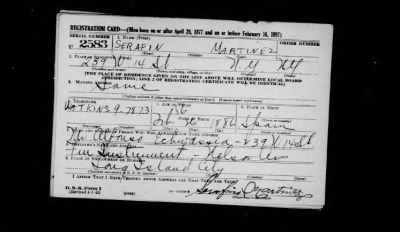 REGISTRATION CARD—(Men born on or after April 28, 1877 and on or before February 16, 1897)
SERIAL NUMBER 1. NAME (Print) ORDER NUMBER
2583 SERAFIN MARTINEZ
2. PLACE OF RESIDENCE (Print)
239 W 14 St NY NY
[THE PLACE OF RESIDENCE GIVEN ON THE LINE ABOVE WILL DETERMINE LOCAL BOARD
JURISDICTION; LINE 2 OF REGISTRATION CERTIFICATE WILL BE IDENTICAL]
3. MAILING ADDRESS
Same
4. TELEPHONE 5. AGE IN YEARS 6. PLACE OF BIRTH
WATKINS 9-7823 56
DATE OF BIRTH
1886 Spain
7. NAME AND ADDRESS OF PERSON WHO WILL ALWAYS KNOW YOUR ADDRESS
Mr Alfonso 239 W 14 St
8. EMPLOYER'S NAME AND ADDRESS
Instrument - Nelson Av
9. PLACE OF EMPLOYMENT OR BUSINESS
Long Island City
I AFFIRM THAT I HAVE VERIFIED ABOVE ANSWERS AND THAT THEY ARE TRUE.
D. S. S. Form 1
(Revised 4-1-42)
Serafin Martinez